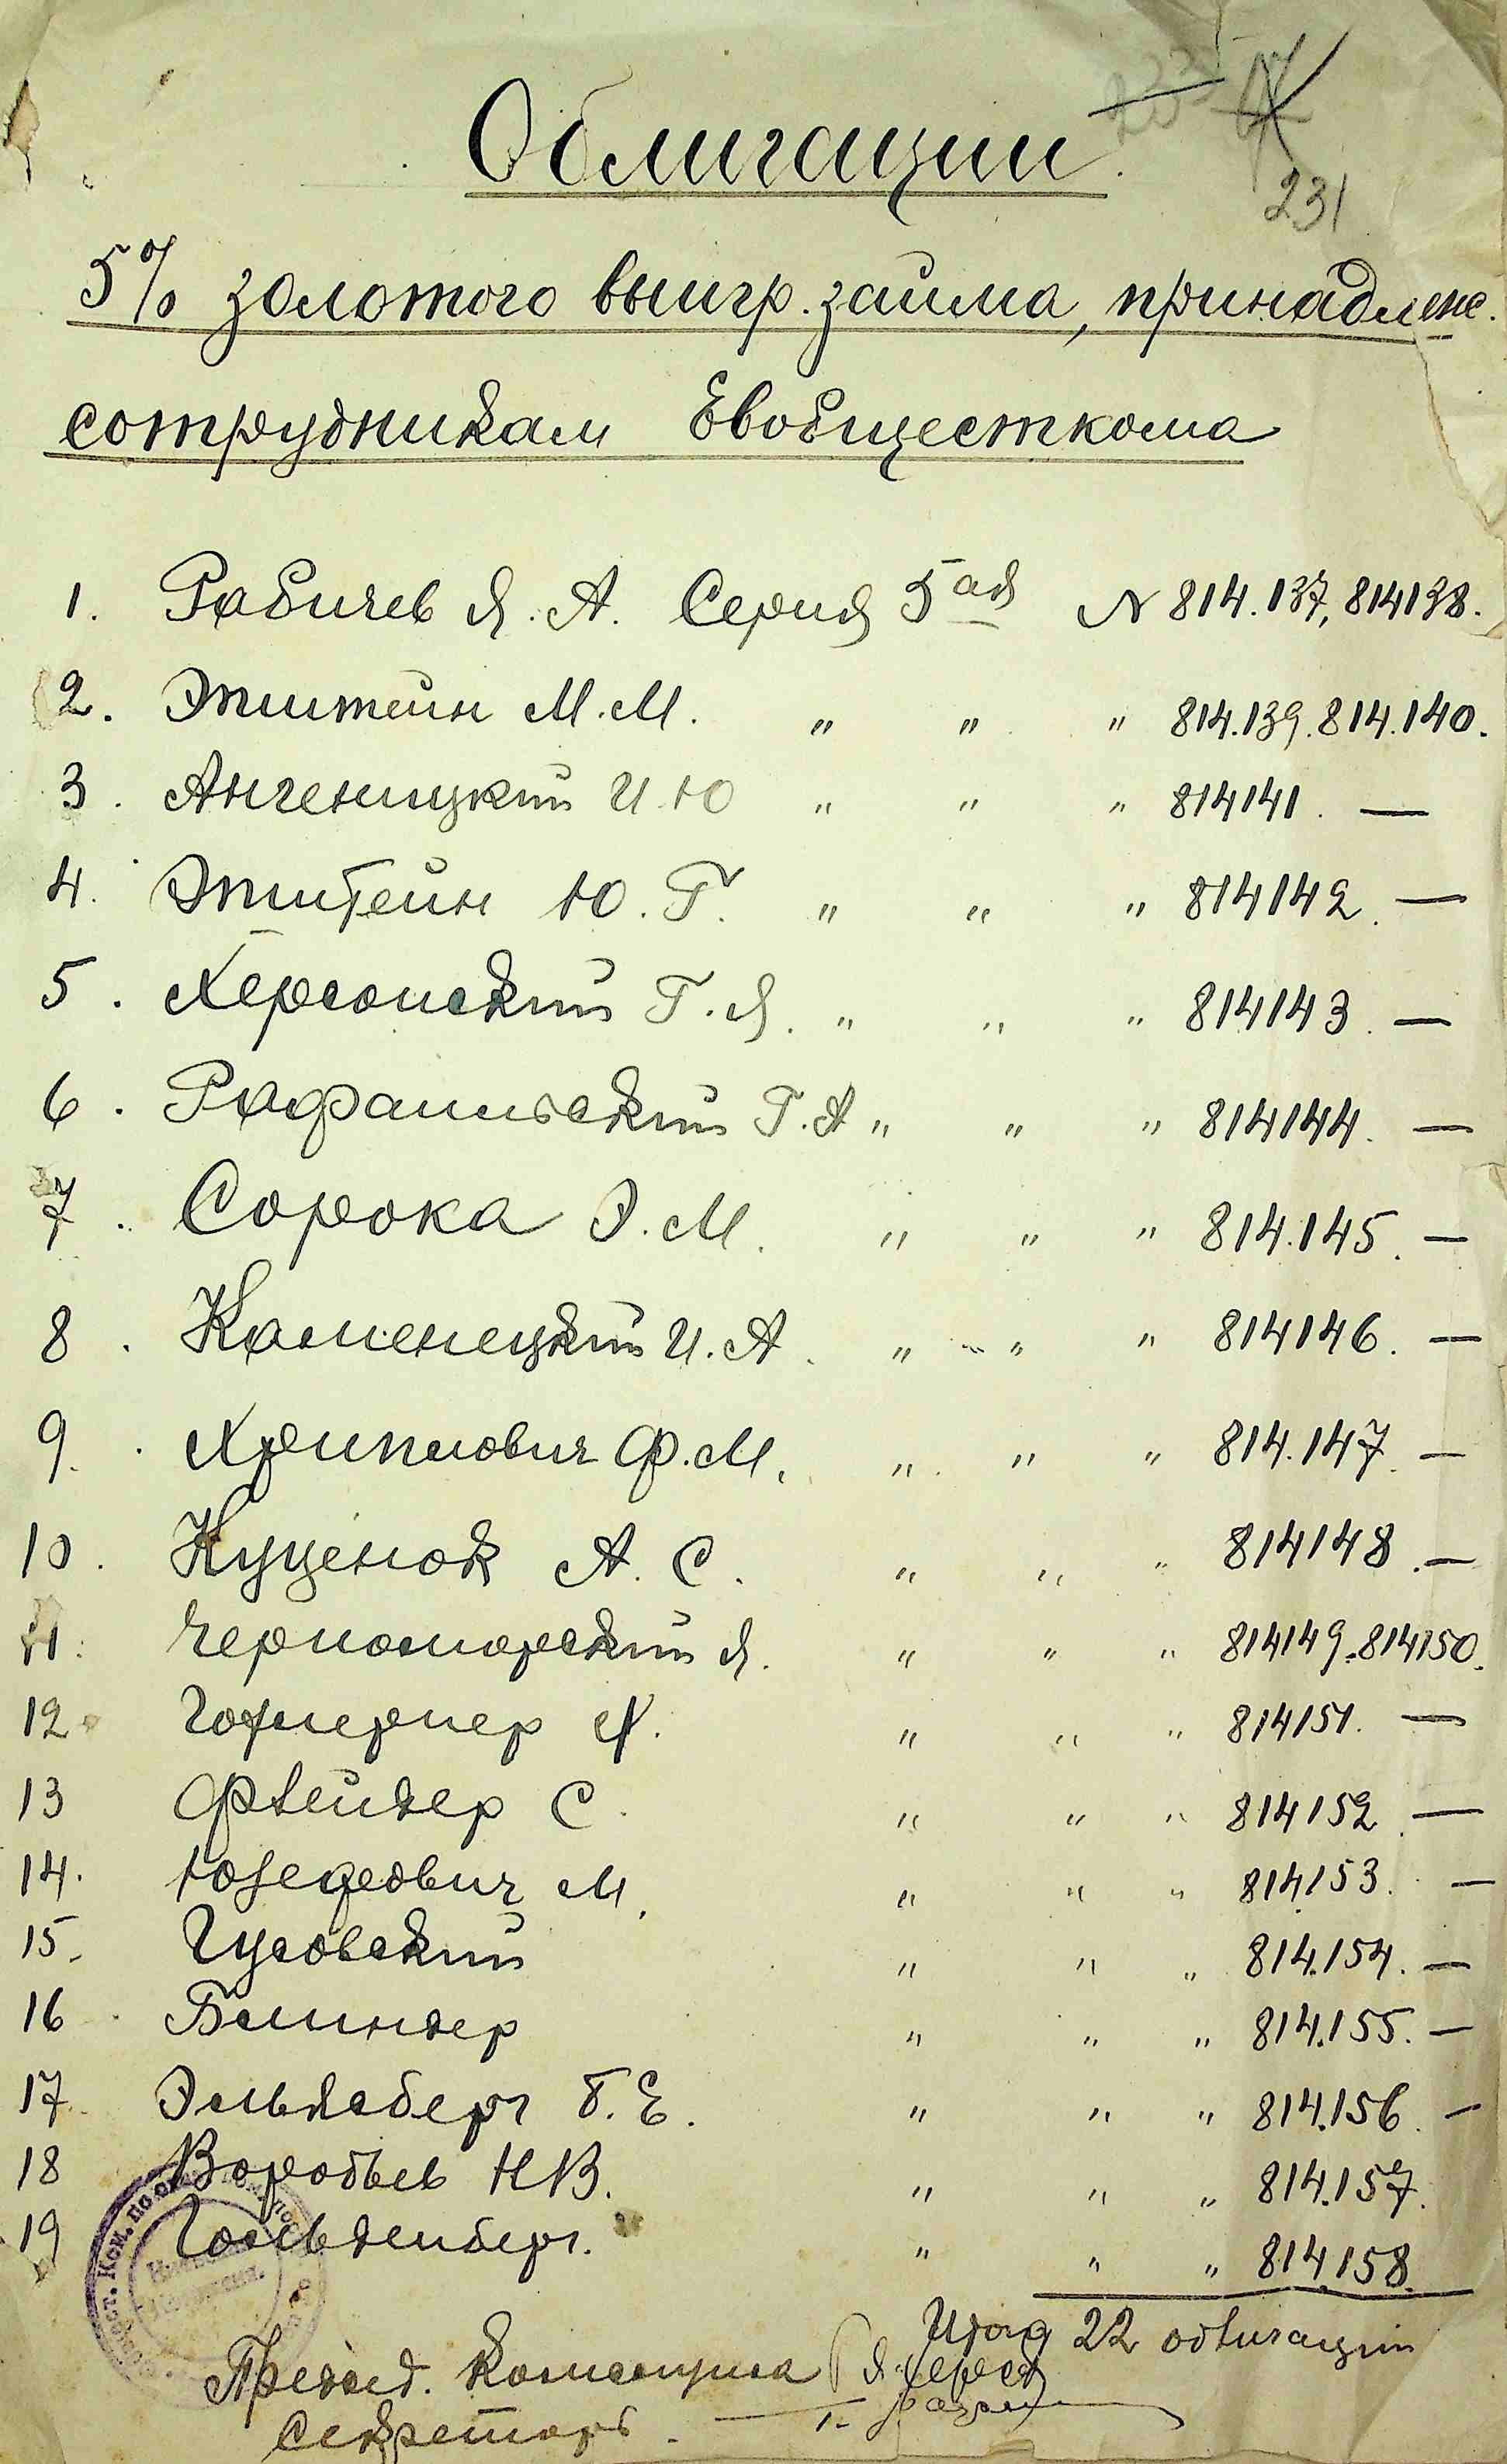 231
Облигации
5% золотого выигр. займа, принадлеж.
сотрудникам Евобщесткома
1. Рабичев Я. А. Серия 5ая N 814.137, 814138.
2. Эпштейн М. М. " " " 814.139. 814.140.
3. Ангеницкий И. Ю " " " 814141. —
4. Эпштейн Ю. Г. " " " 814142. —
5. Херсонский Г. Я. " " " 814143. —
6. Рафаильский Г. А " " " 814144. —
7. Сорока Э. М. " " " 814.145. —
8. Каменецкий И. А. " " " 814146. —
9. Хрипилович Ф. М. " " " 814.147. —
10. Куценок А. С. " " " 814148. —
11. Черноморский Я. " " " 814149. 814150.
12. " " " 814151. —
13 Флейдер С. " " " 814152. —
14. Юзефович М. " " " 814.153. —
15. Гусовский " " " 814.154. —
16. Блиндер " " " 814.155. —
17 Эльясберг Б. Е. " " " 814.156. —
18 Воробьев Н В. " " " 814.157.
19 Гольденберг. " " " 814.158.
Итого 22 облигации
Председ. Комиссии
Секретарь